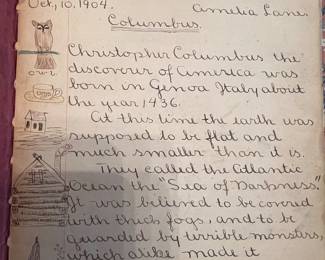 Oct, 10. 1904. Amelia Lane.
Columbus.
Christopher Columbus the
discoverer of America was
born in Genoa Italy about
the year 1436.
At this time the earth was
supposed to be flat and
much smaller than it is.
They called the Atlantic
Ocean the "Sea of Darkness."
It was believed to be covered
with thick fogs, and to be
guarded by terrible monsters,
which alike made it
owl
eggs